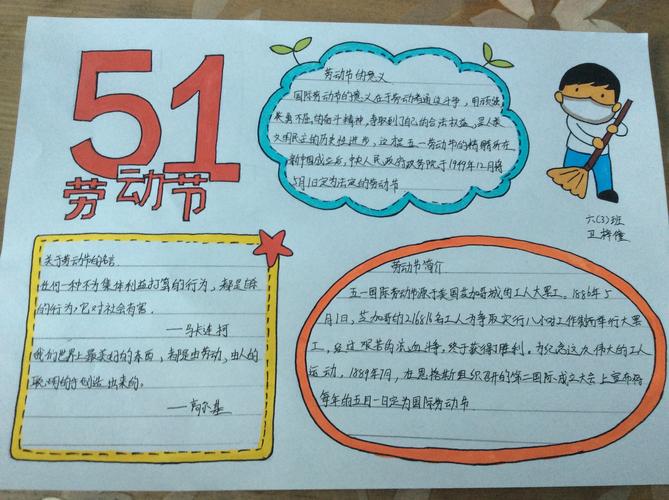 51
劳动节
劳动节的意义
国际劳动节的意义在于劳动者通过斗争，用顽强
英勇不屈的奋斗精神，争取到了自己的合法权益，是人类
文明民主的历史性进步，这才是五一劳动节的精髓所在
新中国成立后，中央人民政府政务院于1949年12月将
5月1日定为法定的劳动节
六(3)班
关于劳动节的名言
任何一种不为集体利益打算的行为，都是自杀
的行为，它对社会有害
——马卡连柯
我们世界上最美好的东西，都是由劳动，由人的
聪明的手创造出来的。
——高尔基
劳动节简介
五一国际劳动节源于美国芝加哥城的工人大罢工。1886年5
月1日，芝加哥的216816名工人为争取实行八小时工作制而举行大罢
工，经过艰苦的流血斗争，终于获得了胜利。为纪念这次伟大的工人
运动，1889年7月，在恩格斯组织召开的第二国际成立大会上宣布将
每年的五月一日定为国际劳动节